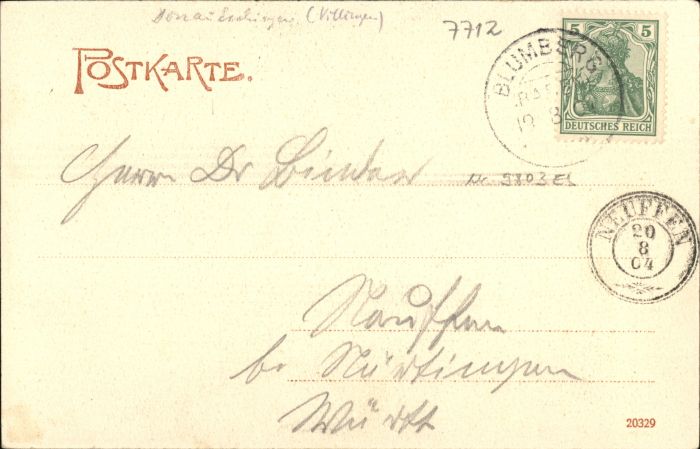 Donaueschingen (Villingen)
7712
POSTKARTE.
5 5
DEUTSCHES REICH
BLUMBERG
(BADEN)
19 8 04
Herrn Dr Binder
Nr. 9803 E1
NEUFFEN
20
8
04
Neuffen
be Nürtingen
Württ
20329